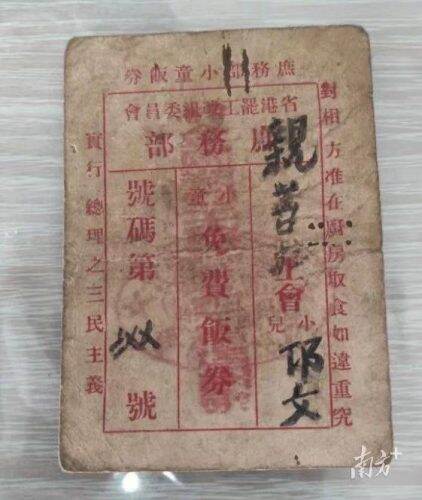 庶務部小童飯券
省港罷工委員會
庶務部
對相方准在廚房取食如違重究
親善
工會
小兒
文
小童
免費飯券
號碼第
號
實行總理之三民主義
南方+